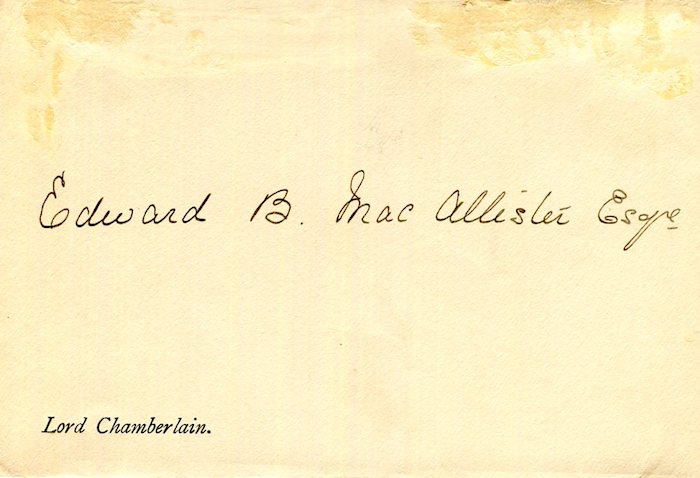 Edward B. Mac Allister Esqre
Lord Chamberlain.